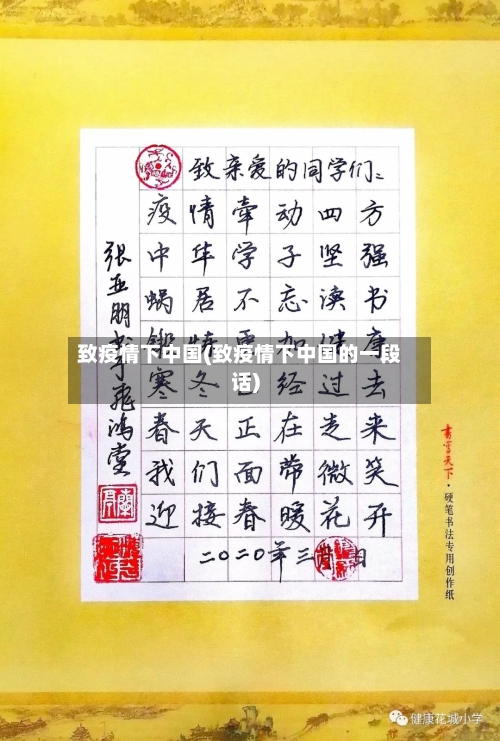 致亲爱的同学们:
疫情牵动四方
中华学子坚强
蜗居不忘读书
更加 康
寒冬已经过去
春天正在走来
我们面带微笑
迎接春暖花开
二〇二〇年三 日
张亚朋书于飛鸿堂
致疫情下中国(致疫情下中国的一段
话)
書寫天下·硬笔书法专用创作纸
健康花城小学